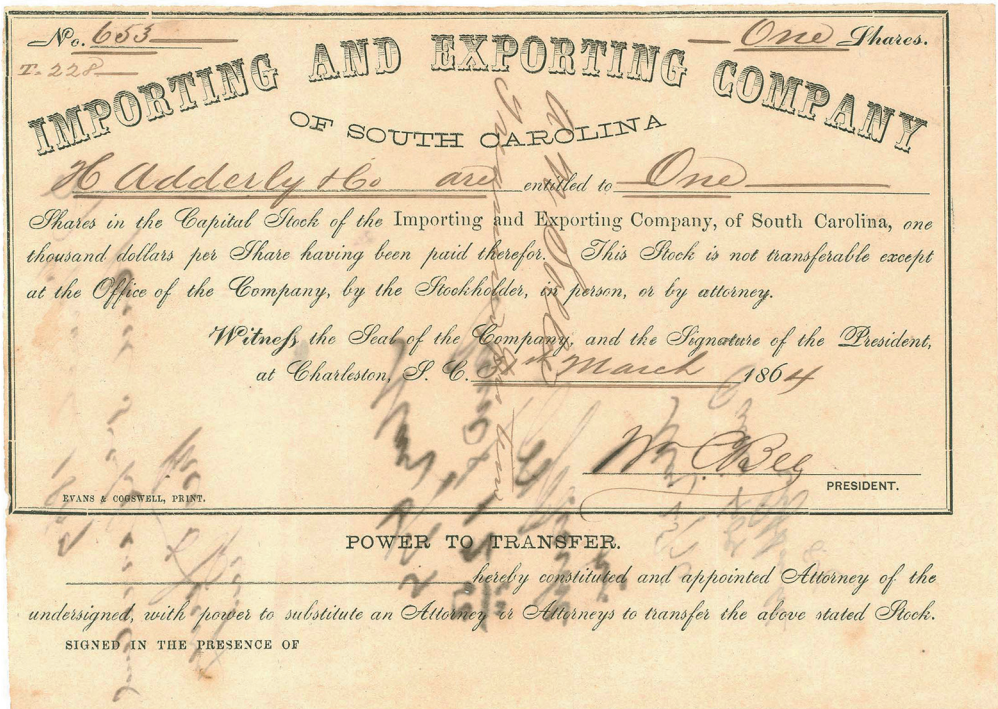 No. 653
One Shares.
T. 228
IMPORTING AND EXPORTING COMPANY
OF SOUTH CAROLINA
H Adderly & Co are entitled to One
Shares in the Capital Stock of the Importing and Exporting Company, of South Carolina, one
thousand dollars per Share having been paid therefor. This Stock is not transferable except
at the Office of the Company, by the Stockholder, in person, or by attorney.
Witness the Seal of the Company, and the Signature of the President,
at Charleston, S. C. March 1864
Wm. C Bee
PRESIDENT.
EVANS & COGSWELL, PRINT.
POWER TO TRANSFER.
hereby constituted and appointed Attorney of the
undersigned, with power to substitute an Attorney or Attorneys to transfer the above stated Stock.
SIGNED IN THE PRESENCE OF